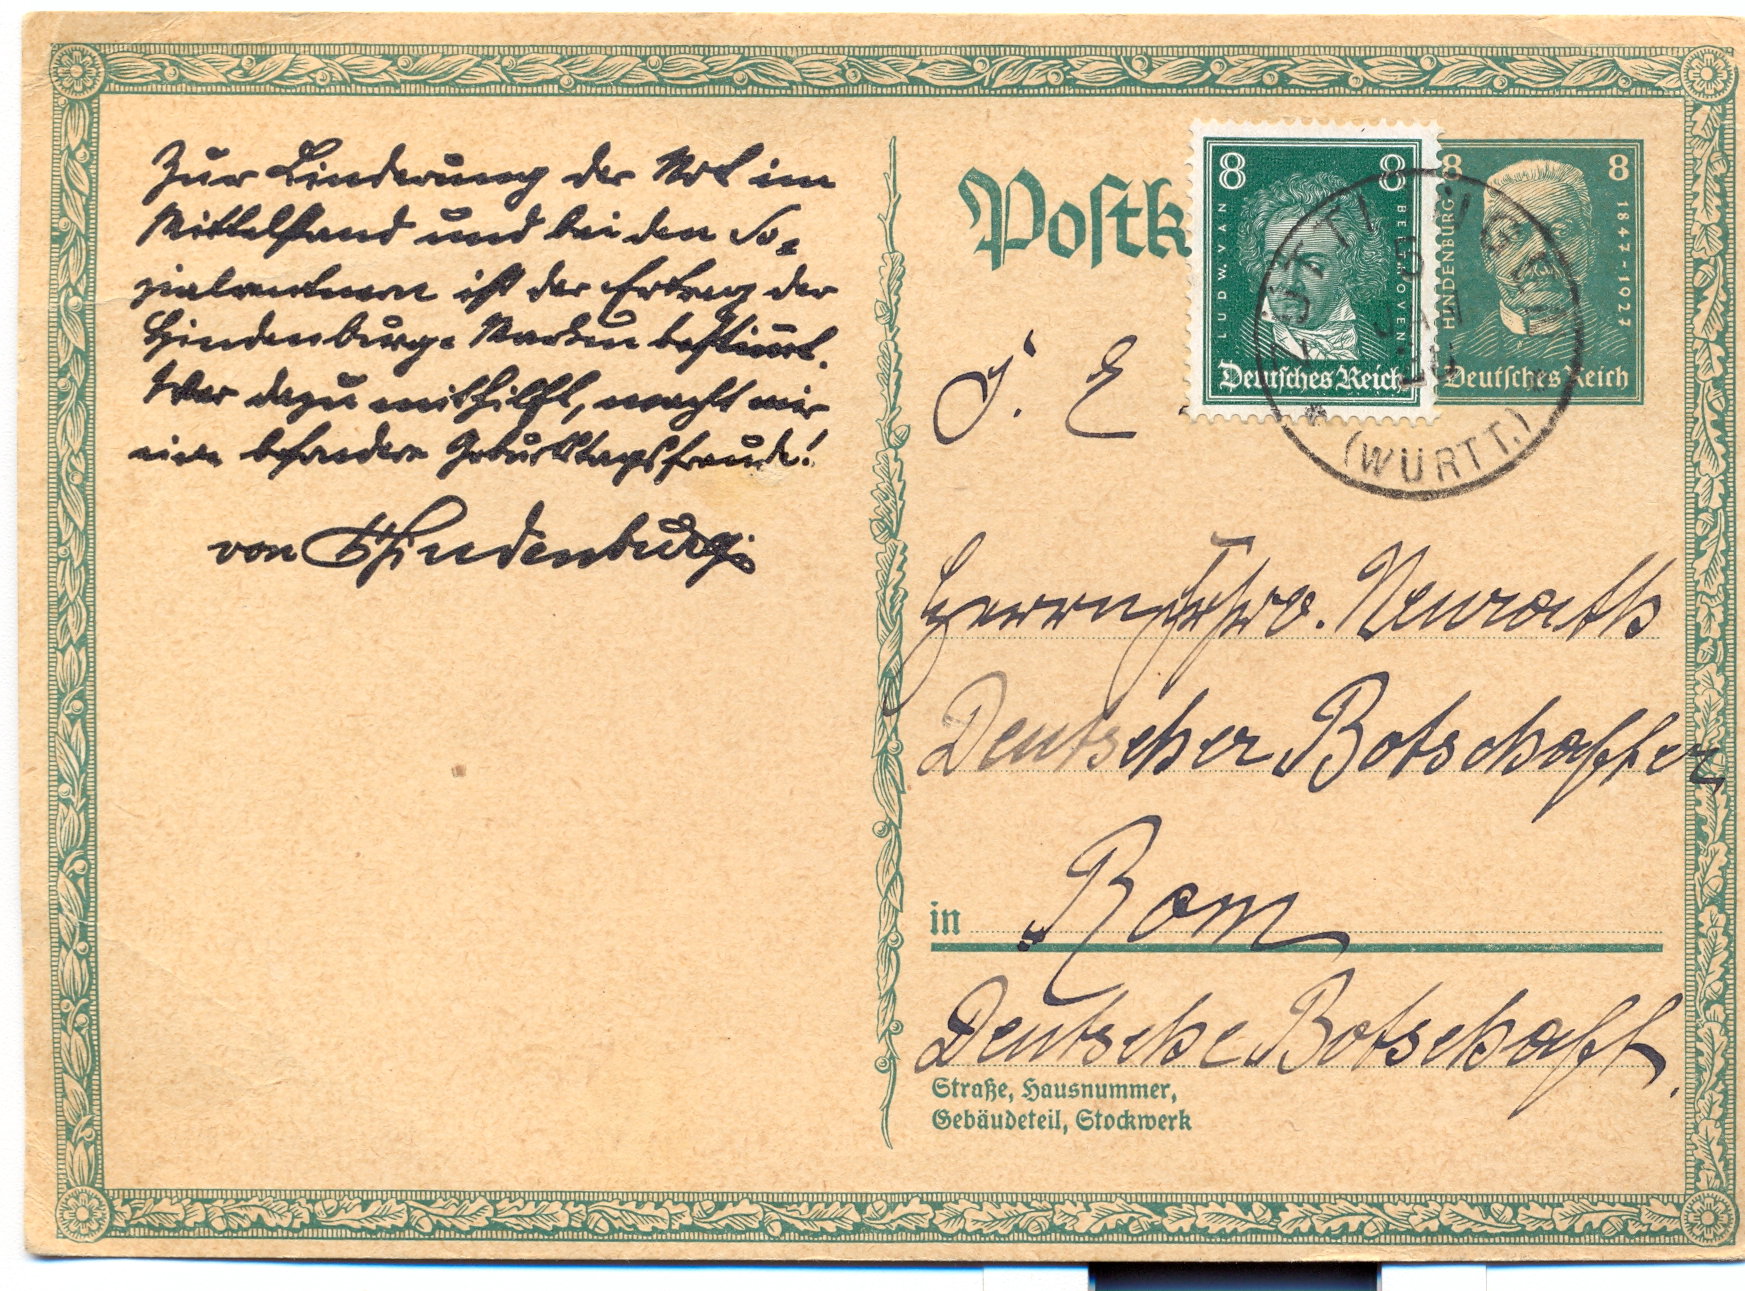 Zur Linderung der Not im
Mittelstand und bei den So-
zialrentnern ist der Ertrag der
Hindenburg-Marken bestimmt.
Wer dazu mithilft, macht mir
eine besondere Geburtstagsfreude!
von Hindenburg.
Postk
8 8
LUDW. VAN
BEETHOVEN
Deutsches Reich
8 8
HINDENBURG
1847-1927
Deutsches Reich
5
(WÜRTT.)
S. E
Herrn Frhr v. Neurath
Deutscher Botschafter
in Rom
Deutsche Botschaft.
Straße, Hausnummer,
Gebäudeteil, Stockwerk